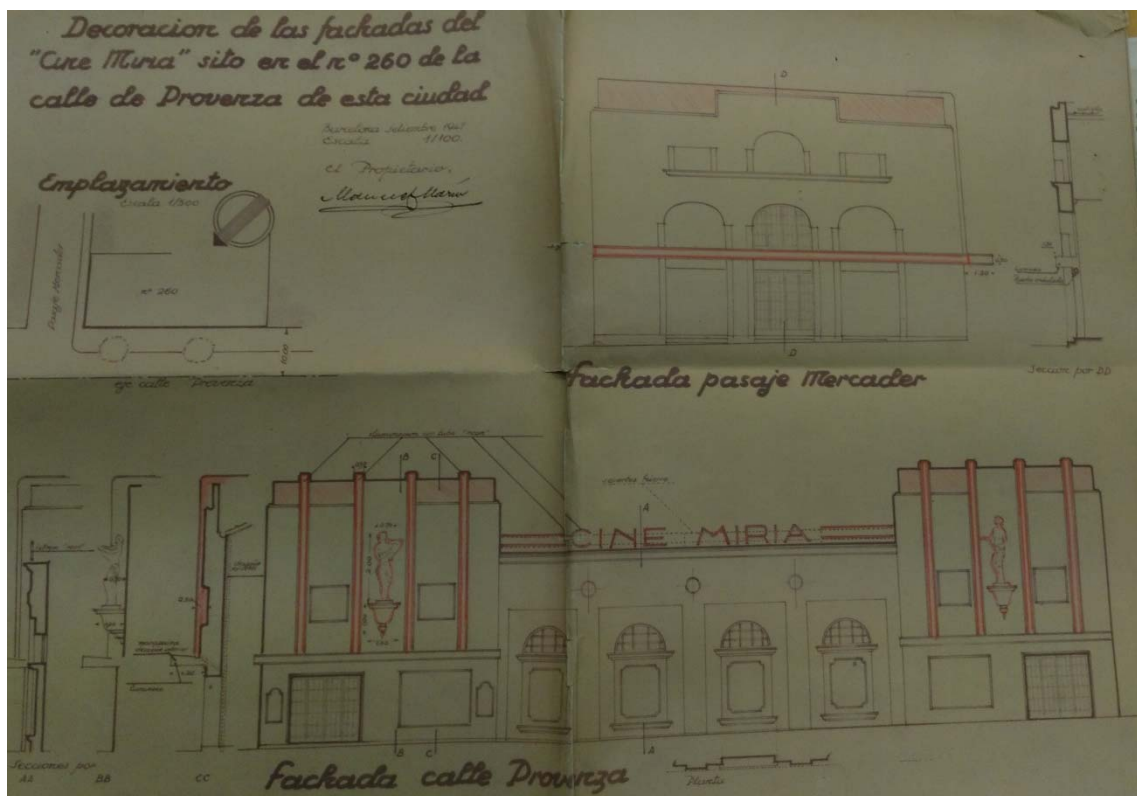 Decoracion de las fachadas del
"Cine Miria" sito en el nº 260 de la
calle de Provenza de esta ciudad
Barcelona setiembre 194
Escala 1/100.
el Propietario.
Emplazamiento
Escala 1/500
nº 260
Pasaje Mercader
10.00
eje calle Provenza
D
D
1.20
fachada pasaje Mercader
Seccion por DD
B
C
A
CINE MIRIA
B
C
A
Secciones por
AA
BB
CC
fachada calle Provenza
Planta